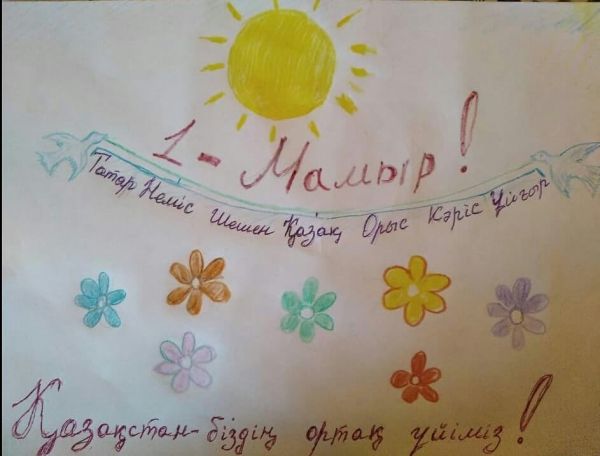 1-Мамыр!
Татар Неміс Шешен Қазақ Орыс Кәріс Ұйғыр
Қазақстан-біздің ортақ үйіміз!